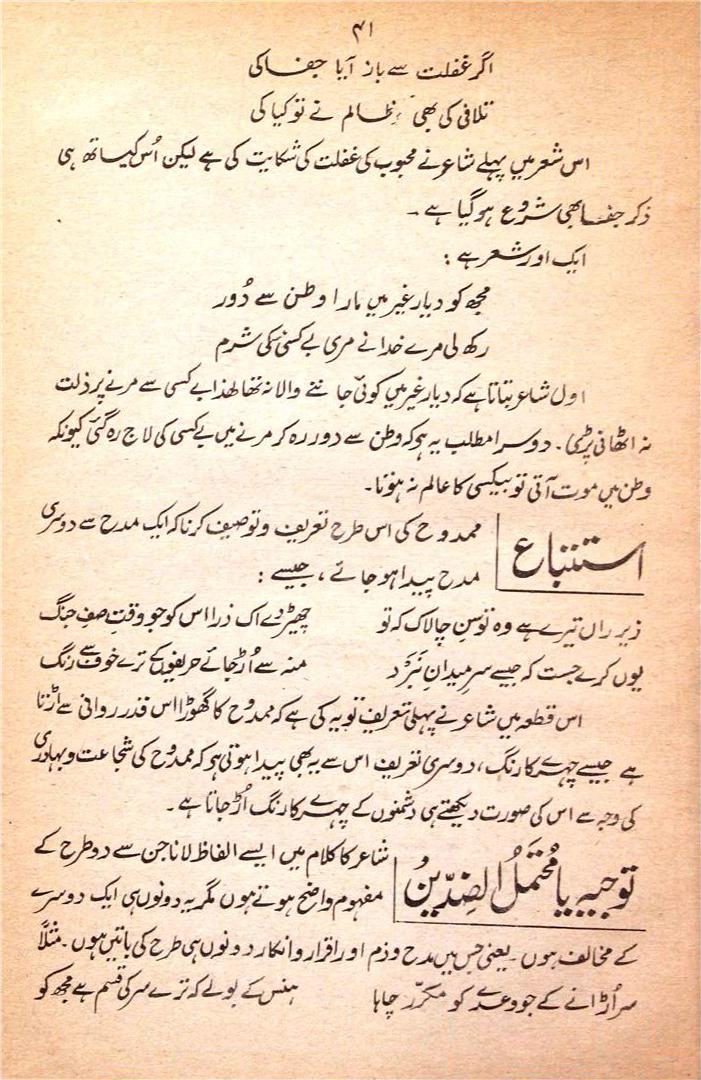 ۴۱
اگر غفلت سے باز آیا جفا کی
تلافی کی بھی ظالم نے تو کیا کی
اس شعر میں پہلے شاعر نے محبوب کی غفلت کی شکایت کی ہے لیکن اُس کیساتھ ہی
ذکر جفا بھی شروع ہو گیا ہے۔
ایک اور شعر ہے :
مجھ کو دیارِ غیر میں مارا وطن سے دُور
رکھ لی مرے خدا نے مری بے کسی کی شرم
اول شاعر بتاتا ہے کہ دیارِ غیر میں کوئی جاننے والا نہ تھا لہٰذا بے کسی سے مرنے پر ذلت
نہ اٹھانی پڑی۔ دوسرا مطلب یہ ہو کہ وطن سے دور رہ کر مرنے میں بے کسی کی لاج رہ گئی کیونکہ
وطن میں موت آتی تو بیکسی کا عالم نہ ہوتا۔
استتباع ممدوح کی اس طرح تعریف و توصیف کرنا کہ ایک مدح سے دوسری
مدح پیدا ہو جائے ، جیسے :
زیرِ راں تیرے ہے وہ توسنِ چالاک کہ تو چھیڑ دے اک ذرا اس کو جو وقتِ صفِ جنگ
یوں کرے جست کہ جیسے سرِ میدانِ نَبَرْد منہ سے اُڑ جائے حریفوں کے ترے خوف سے رنگ
اس قطعہ میں شاعر نے پہلی تعریف تو یہ کی ہے کہ ممدوح کا گھوڑا اس قدر روانی سے اڑتا
ہے جیسے چہرے کا رنگ ، دوسری تعریف اس سے یہ بھی پیدا ہوتی ہو کہ ممدوح کی شجاعت و بہادری
کی وجہ سے اس کی صورت دیکھتے ہی دشمنوں کے چہرے کا رنگ اُڑ جاتا ہے۔
توجیہ یا مُحتَمَلُ الضِدّین شاعر کا کلام میں ایسے الفاظ لانا جن سے دو طرح کے
مفہوم واضح ہوتے ہوں مگر یہ دونوں ہی ایک دوسرے
کے مخالف ہوں۔ یعنی جس میں مدح و ذم اور اقرار و انکار دونوں ہی طرح کی باتیں ہوں۔ مثلاً
سر اُڑانے کے جو وعدے کو مکرّر چاہا ہنس کے بولے کہ ترے سر کی قسم ہے مجھ کو